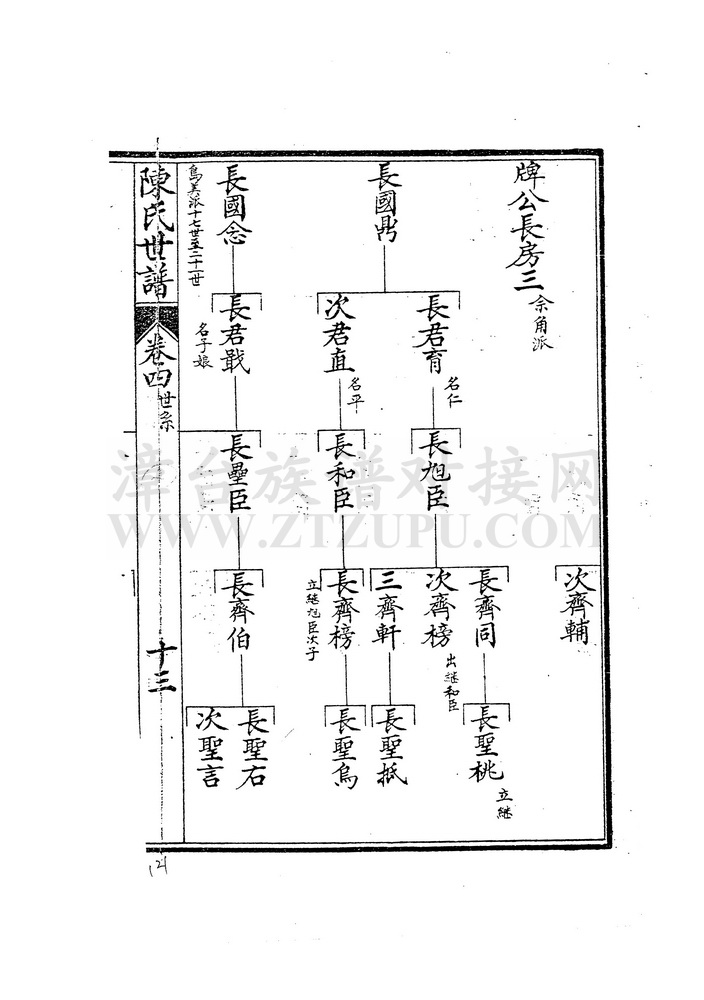 牌公長房三
佘角派
次齊輔
長國鼎
長君育
名仁
長旭臣
長齊同
長聖桃
立継
次齊榜
出継和臣
三齊軒
長聖抵
次君直
名平
長和臣
長齊榜
立継旭臣次子
長聖烏
長國念
長君戢
名子娘
長壘臣
長齊伯
長聖右
次聖言
烏美派十七世至二十一世
陳氏世譜
卷四
世系
十三
漳台族谱对接网
WWW.ZTZUPU.COM